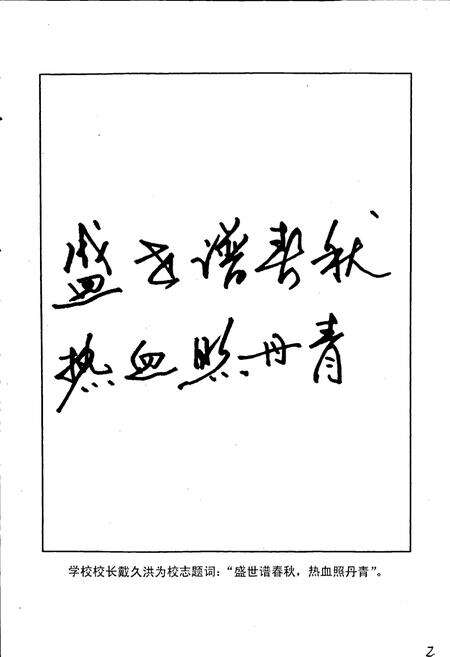 盛世谱春秋
热血照丹青
学校校长戴久洪为校志题词：“盛世谱春秋，热血照丹青”。
2